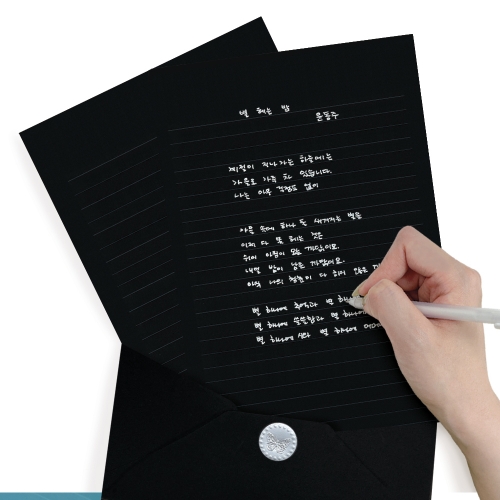 별 헤는 밤
윤동주
계절이 지나가는 하늘에는
가을로 가득 차 있습니다.
나는 아무 걱정도 없이
가슴 속에 하나 둘 새겨지는 별을
이제 다 못 헤는 것은
쉬이 아침이 오는 까닭이요,
내일 밤이 남은 까닭이요,
아직 나의 청춘이 다 하지 않은
별 하나에 추억과 별 하나에
별 하나에 쓸쓸함과 별 하나에
별 하나에 시와 별 하나에 어머